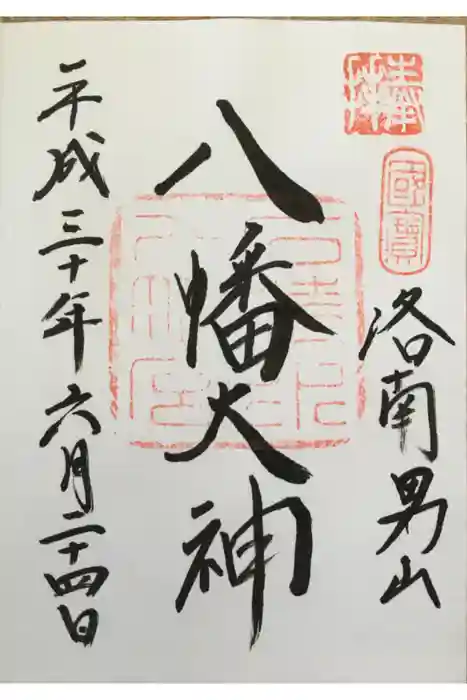 奉拝
國寶
洛南男山
八幡大神
平成三十年六月二十四日